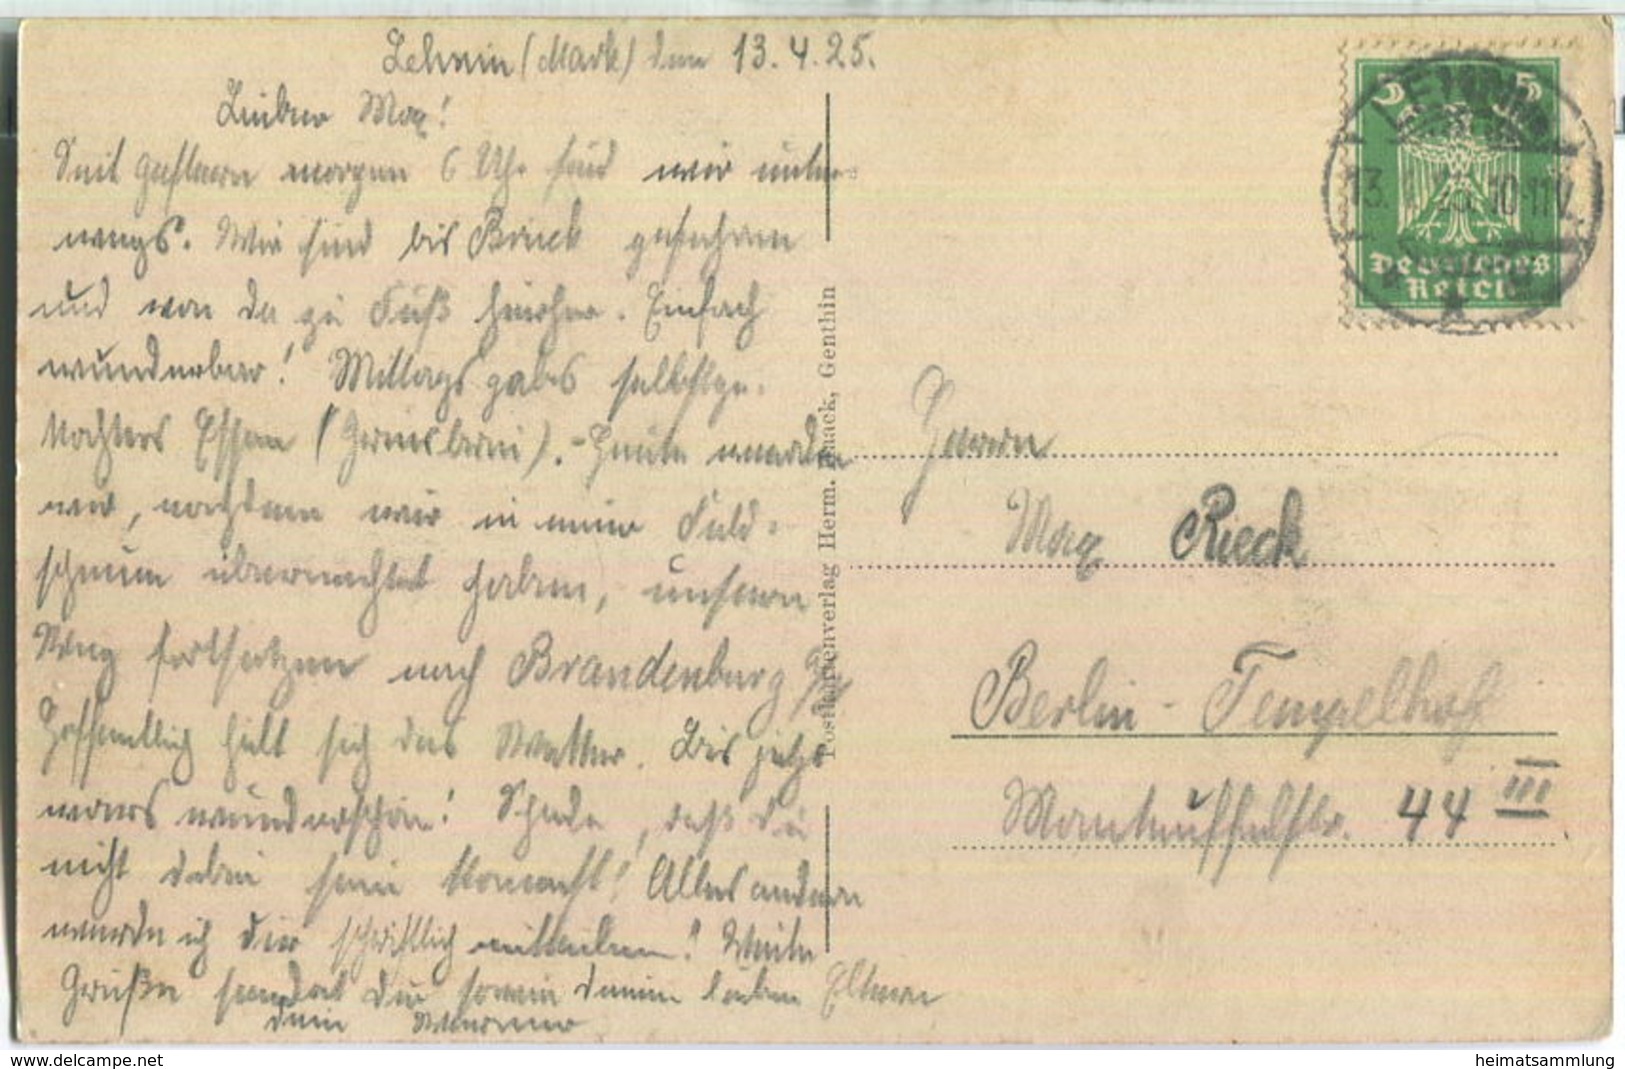 Lehnin (Mark) den 13.4.25.
Lieber Max!
Seit gestern morgen 6 Uhr sind wir unter-
wegs. Wir sind bis Brück gefahren
und von da zu Fuß hierher. Einfach
wunderbar! Mittags gabs selbstge-
kochtes Essen
Heute werden
wir, nachdem wir in einer Feld-
scheune übernachtet haben, unseren
Weg fortsetzen nach Brandenburg
Hoffentlich hält sich das Wetter. Bis jetzt
wars wunderschön! Schade, daß du
nicht dabei sein konntest! Alles andere
werde ich dir schriftlich mitteilen! Viele
Grüße sendet dir sowie deinen lieben Eltern
dein Werner
Postkartenverlag Herm. Genthin
5 5
Deutsches
Reich
LEHNIN
13. 4. 25. 10-11 V.
Herrn
Max Rieck
Berlin-Tempelhof
Manteuffelstr. 44 III
heimatsammlung
delcampe.net